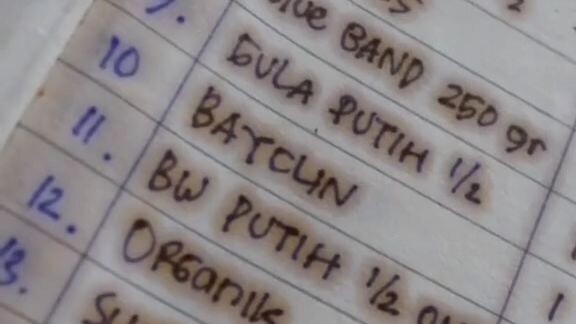 9. BLUE BAND 250 gr
10 GULA PUTIH 1/2
11. BAYCLIN
12. BW PUTIH 1/2
13. ORGANIK